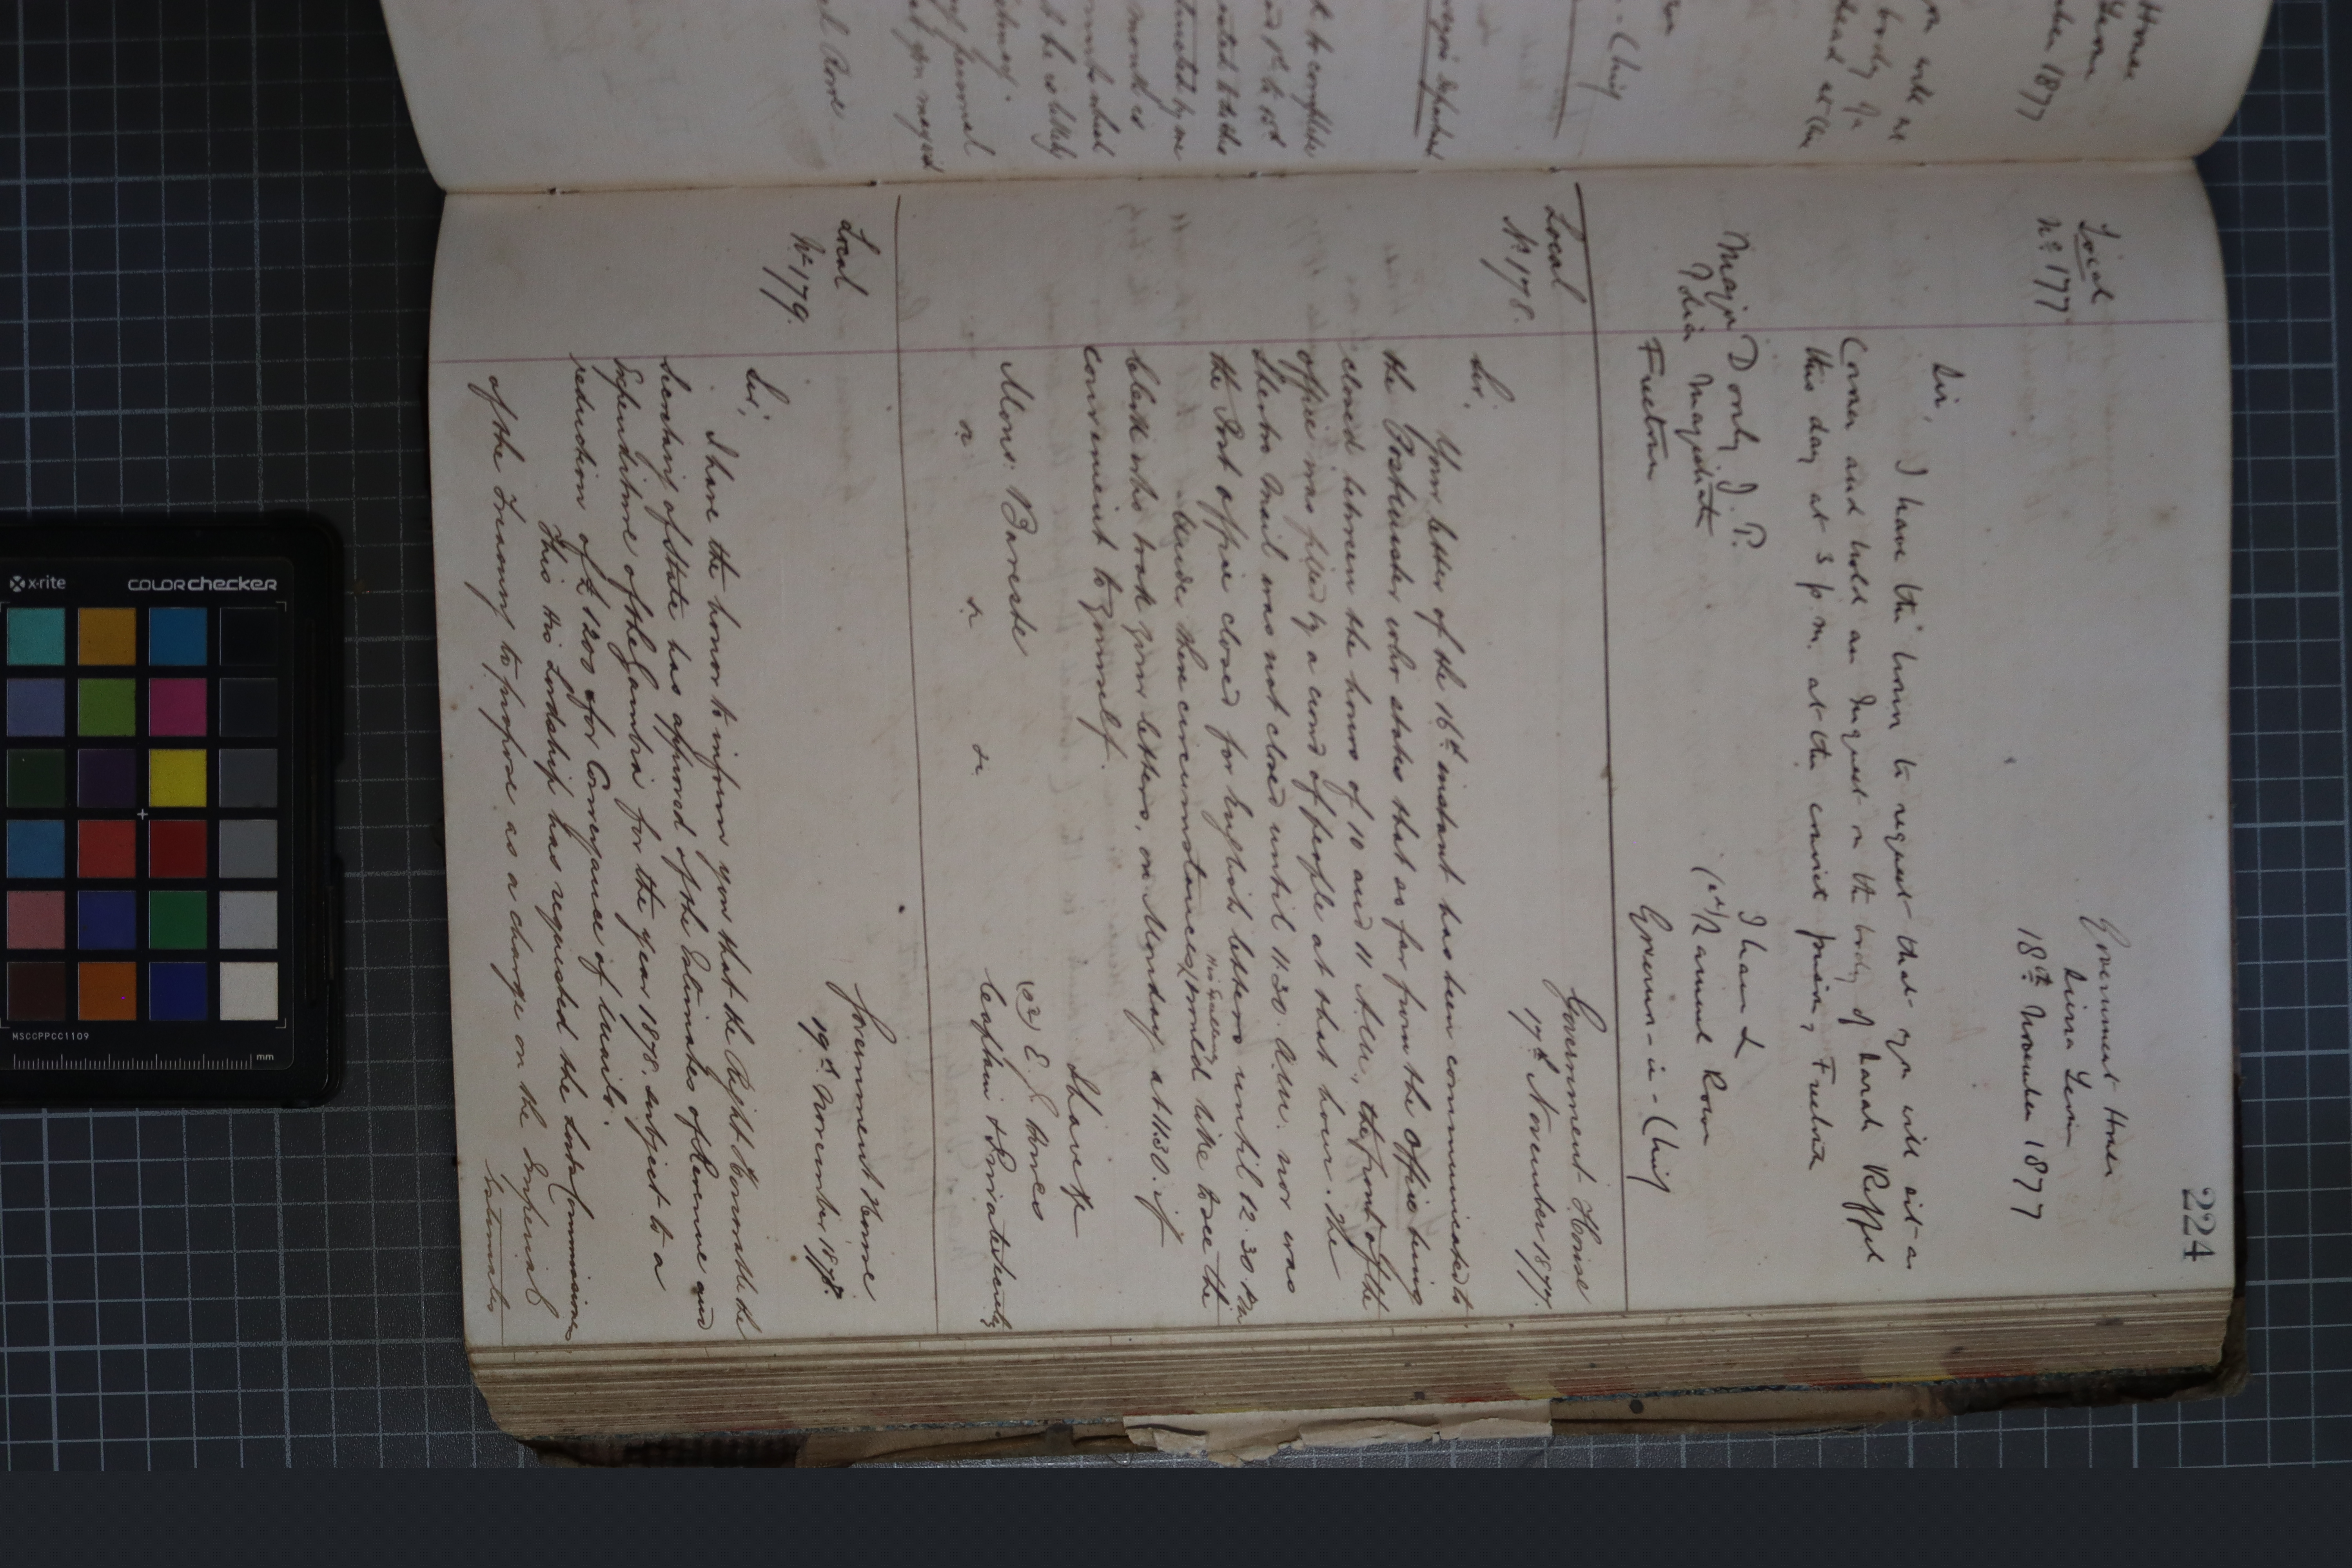 224
Local
No 177
Government House
Sierra Leone
18th November 1877
Sir,
I have the honor to request that you will sit as
Coroner and hold an Inquest on the body of Sarah
this day at 3 p.m. at the convict prison, Freetown
I have &
(sd) Samuel Rowe
Governor-in-Chief
Major Donly J. P.
Police Magistrate
Freetown
Local
No 178.
Government House
17th November 1877.
Sir,
Your letter of the 16th instant has been communicated to
the Postmaster who states that so far from the office being
closed between the hours of 10 and 11 A.M., the front of the
office was filled by a crowd of people at that hour. The
Sherbro Mail was not closed until 11.30. A.M. nor was
the Post office closed for English letters until 12.30 P.M.
Under these circumstances, His Excellency would like to see the
clerk who took your letters, on Monday at 11.30. if
convenient to yourself.
I have &c
(sd) E. L.
Captain & Private Secretary
Mons. Bareste
Local
No 179.
Government House
19th November 1878.
Sir,
I have the honor to inform you that the Right Honorable the
Secretary of State has approved of the Estimates of Revenue and
Expenditure of the Gambia for the year 1878, subject to a
reduction of £1200 for Conveyance of Mails.
This His Lordship has requested the Lords Commissioners
of the Treasury to propose as a charge on the Imperial
Estimates
House
Leone
1877
Chief
to complete
by me
month is
personal
Rowe
x-rite
COLORchecker
MSCCPPCC1109
mm